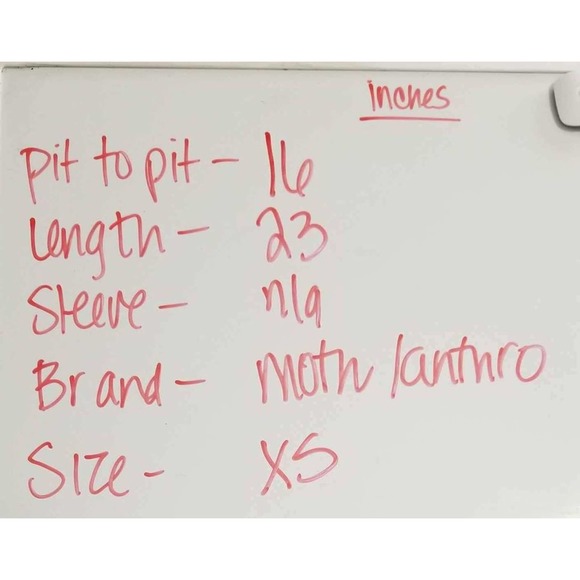 inches
pit to pit - 16
Length - 23
Sleeve - n/a
Brand - Moth / anthro
Size - XS